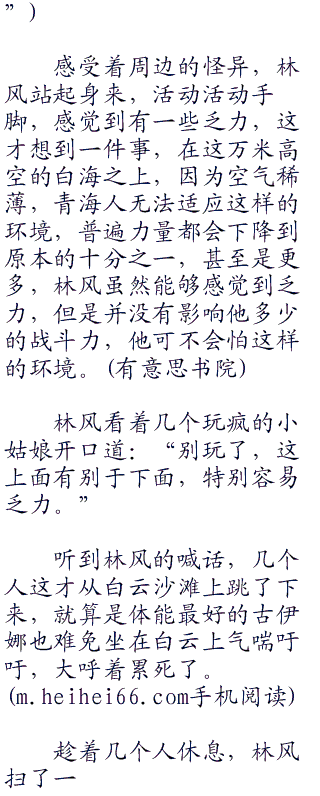 ”)
感受着周边的怪异，林
风站起身来，活动活动手
脚，感觉到有一些乏力，这
才想到一件事，在这万米高
空的白海之上，因为空气稀
薄，青海人无法适应这样的
环境，普遍力量都会下降到
原本的十分之一，甚至是更
多，林风虽然能够感觉到乏
力，但是并没有影响他多少
的战斗力，他可不会怕这样
的环境。(有意思书院)
林风看着几个玩疯的小
姑娘开口道：“别玩了，这
上面有别于下面，特别容易
乏力。”
听到林风的喊话，几个
人这才从白云沙滩上跳了下
来，就算是体能最好的古伊
娜也难免坐在白云上气喘吁
吁，大呼着累死了。
(m.heihei66.com手机阅读)
趁着几个人休息，林风
扫了一